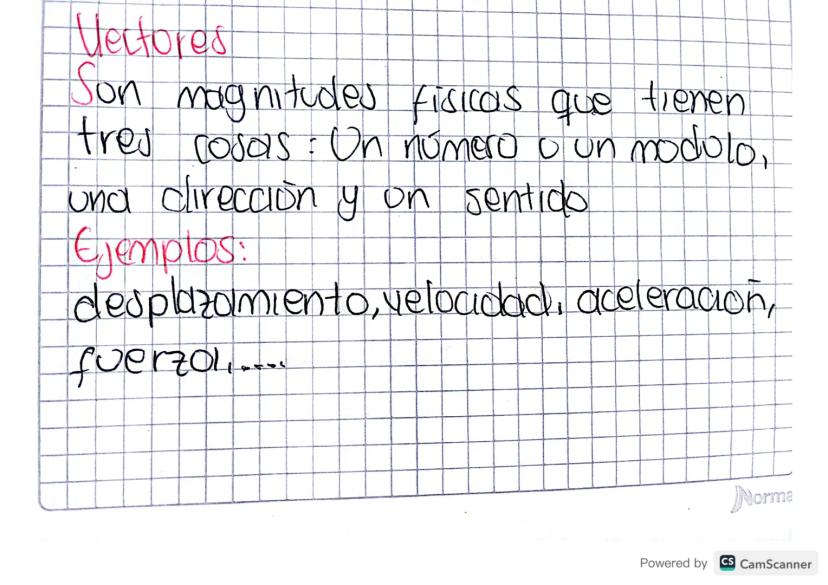 Vectores
Son magnitudes físicas que tienen
tres cosas: Un número o un modulo,
una dirección y un sentido
Ejemplos:
desplazamiento, velocidad, aceleración,
fuerza,.....
Norma
Powered by CS CamScanner